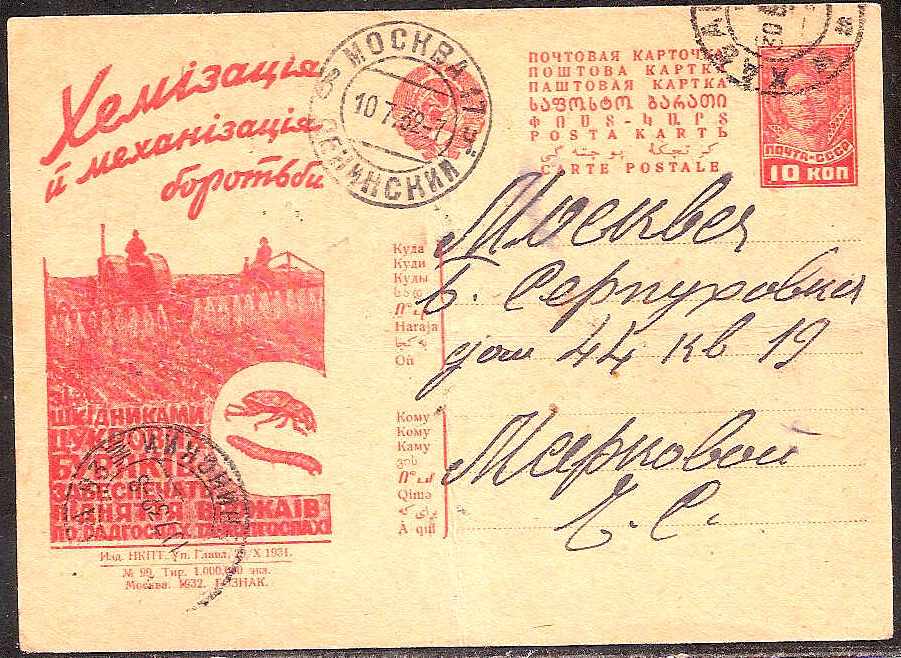 Хемізація
й механізація
боротьби
зі
ШКІДНИКАМИ
ЦУКРОВИХ
БУРЯКІВ
ЗАБЕСПЕЧАТЬ
ПІДНЯТТЯ ВРОЖАЇВ
ПО РАДГОСПАХ ТА КОЛГОСПАХ!
Изд. НКПТ. Уп. Главл. X 1931.
№ 99. Тир. 1.000.000 экз.
Москва. 1932. ГОЗНАК.
МОСКВА 17
10 7.32-7
ЛЕНИНСКИЙ
ПОЧТОВАЯ КАРТОЧКА
ПОШТОВА КАРТКА
ПАШТОВАЯ КАРТКА
ᲡᲐᲤᲝᲡᲢᲝ ᲑᲐᲠᲐᲗᲘ
ՓՈՍՏ-ԿԱՐՏ
POSTA KARTЬ
CARTE POSTALE
ПОЧТА-СССР
10 КОП
Куда
Куди
Куды
Haraja
Où
Москва
Б. Серпуховка
дом 44 кв 19
Кому
Кому
Каму
ვის
Qimə
À qui
Марковой
Е. С.